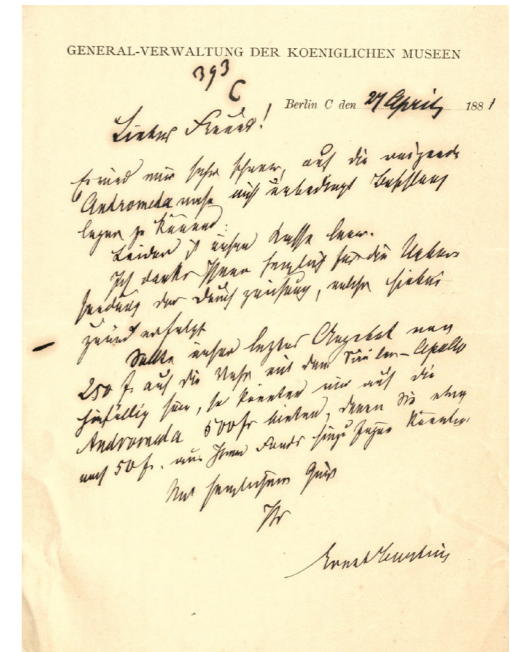 GENERAL-VERWALTUNG DER KOENIGLICHEN MUSEEN
393
C
Berlin C den 27 April 1881
Lieber Freund!
Es wird mir sehr schwer, auf die reizende
Andromedavase nicht unbedingt Beschlag
legen zu können.
Leider ist unsere Kasse leer.
Ich danke Ihnen herzlich für die Ueber-
sendung der Durchzeichnung, welche hiebei
zurück erfolgt
Sollte unser letztes Angebot von
250 f. auf die Vase mit dem Säulen-Apollo
hinfällig sein, so könnten wir auf die
Andromeda 500 fr bieten, denen Sie etwa
noch 50 fr. aus Ihrem Fonds hinzufügen könnten.
Mit herzlichem Gruß
Ihr
Ernst Curtius